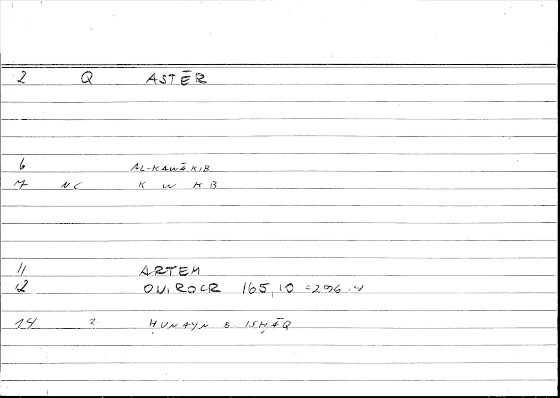 2 Q ASTĒR
6 AL-KAWĀKIB
7 NC K W K B
11 ARTEM
12 ONIROCR 165,10 =296.4
14 2 ḤUNAYN B ISḤĀQ